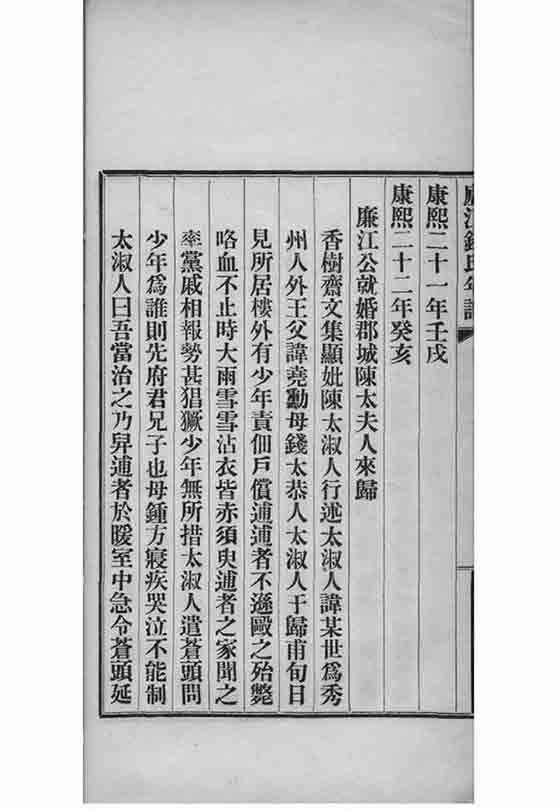 廉江錢氏年譜
康熙二十一年壬戌
康熙二十二年癸亥
廉江公就婚郡城陳太夫人來歸
香樹齋文集顯妣陳太淑人行述太淑人諱某世爲秀
州人外王父諱堯勳母錢太恭人太淑人于歸甫旬日
見所居樓外有少年責佃戶償逋逋者不遜毆之殆斃
咯血不止時大雨雪雪沾衣皆赤須臾逋者之家聞之
率黨戚相報勢甚猖獗少年無所措太淑人遣蒼頭問
少年爲誰則先府君兄子也母鍾方寢疾哭泣不能制
太淑人曰吾當治之乃舁逋者於暖室中急令蒼頭延